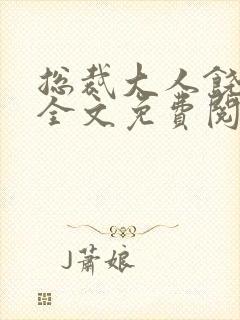 总裁大人饶
全文免费阅
J萧娘